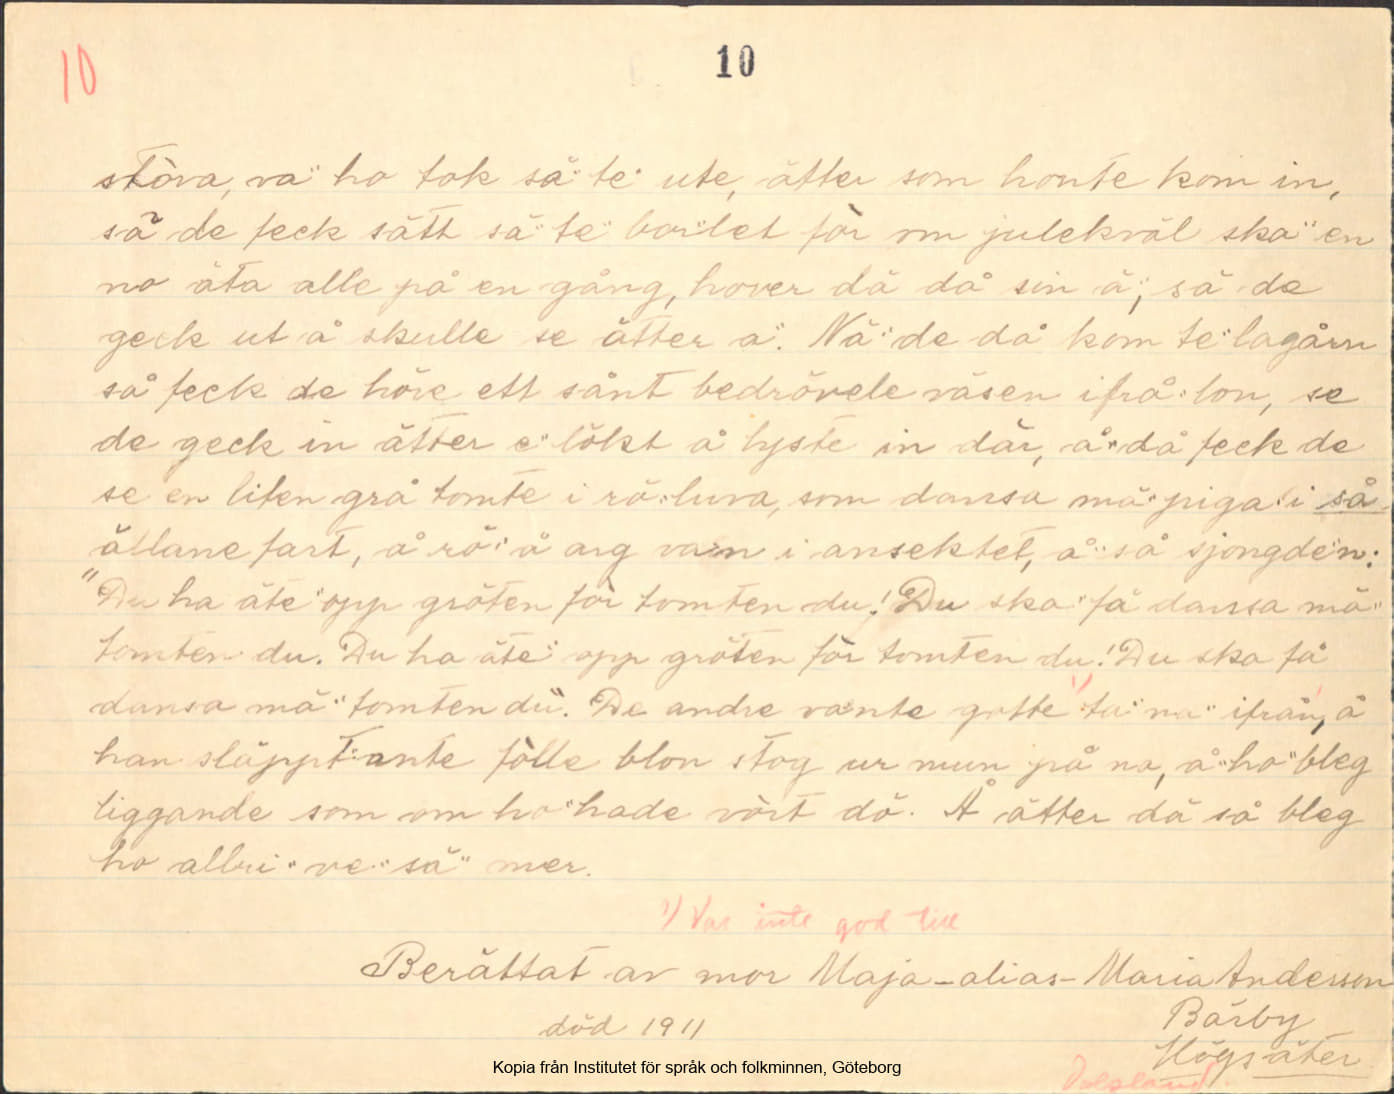 10
10
stôva, va¨ ho tok sä¨ te¨ ute, ätter som honte kom in,
så de feck sätt sä¨ te¨ bor¨let för om julekväl ska¨ en
no äta alle på en gång, hover dä då sin ä¨, så de
geck ut å skulle se ätter a¨. Nä¨ de då kom te¨ lagårn
så feck de höre ett sånt bedrövele väsen ifrå¨ lon, se
de geck in ätter e¨ lökt å lyste in där, å¨ då feck de
se en liten grå tomte i rö¨ luva, som dansa mä¨ piga¨ i så
ällane fart, å rö¨ å arg va¨n i ansektet, å¨ så sjongde¨n:
"Du ha äte¨ opp gröten för tomten du! Du ska¨ få dansa mä¨
tomten du. Du ha äte¨ opp gröten för tomten du! Du ska få
dansa mä¨ tomten du". De andre va¨nte gotte 1) ta¨ na¨ ifrån, å
han släppt¨ante fölle blon stog ur mun på na, å¨ ho¨ bleg
liggande som om ho¨ hade vôrt dö. Å ätter dä så bleg
ho allri¨ ve¨ sä¨ mer.
1) Var inte god till
Berättat av mor Maja - alias - Maria Andersson
Bärby
död 1911
Högsäter
Dalsland
Kopia från Institutet för språk och folkminnen, Göteborg